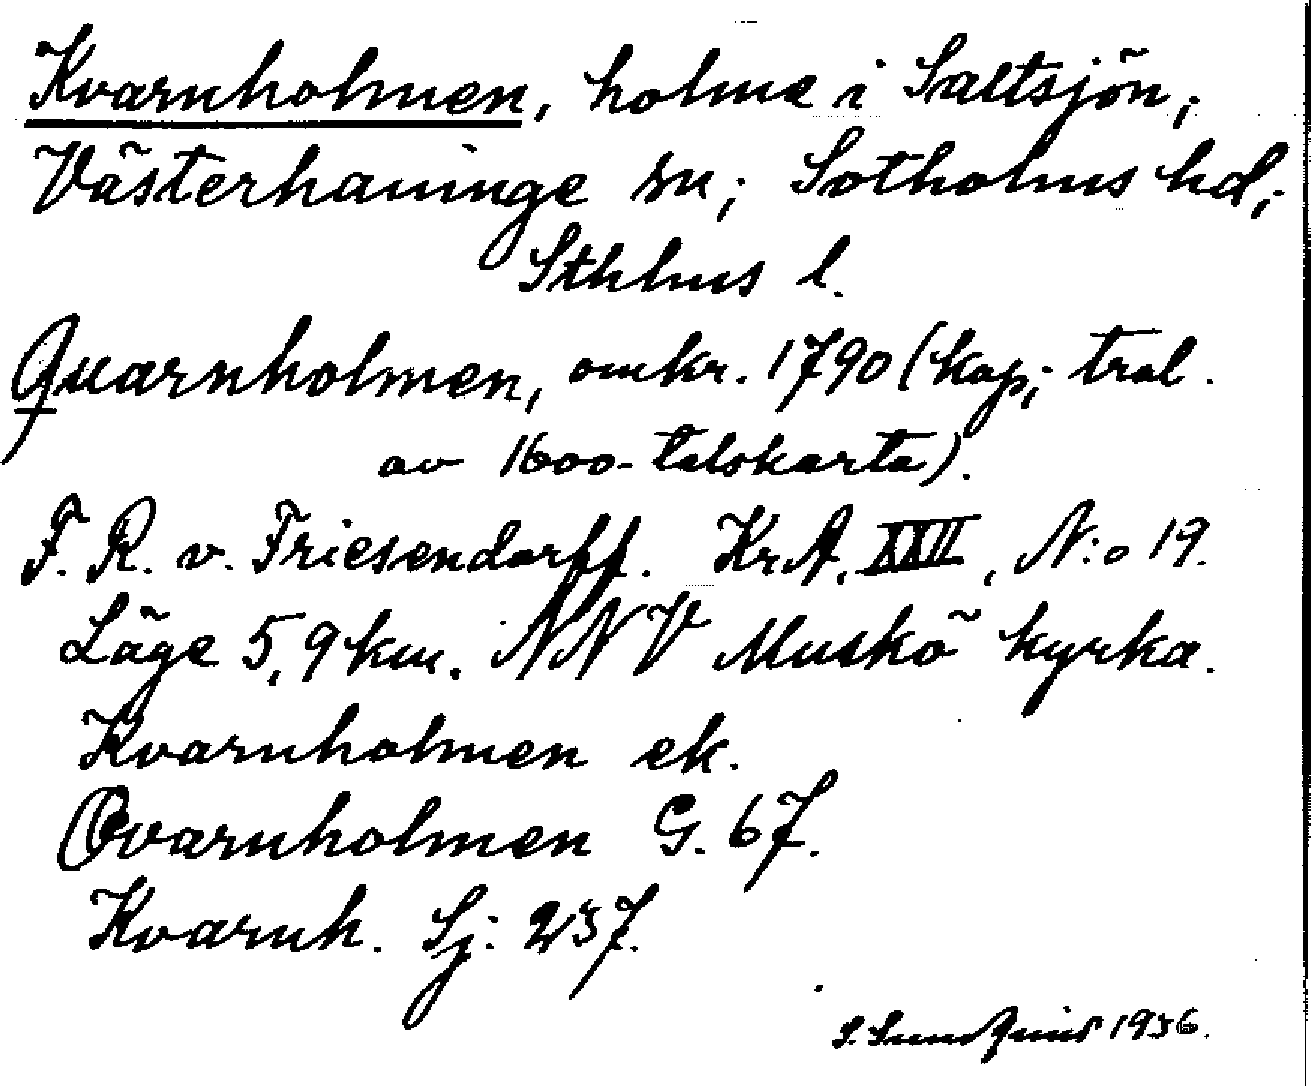 Kvarnholmen, holme i Saltsjön;
Västerhaninge sn; Sotholms hd;
Sthlms l.
Quarnholmen, omkr. 1790 (kop; trol.
av 1600-talskarta).
F. R. v. Friesendorff. Kr.A. XXII, N:o 19.
Läge 5,9 km. NNV Muskö kyrka.
Kvarnholmen ek.
Qvarnholmen G. 67.
Kvarnh. Sj: 237.
S. Sundquist 1936.